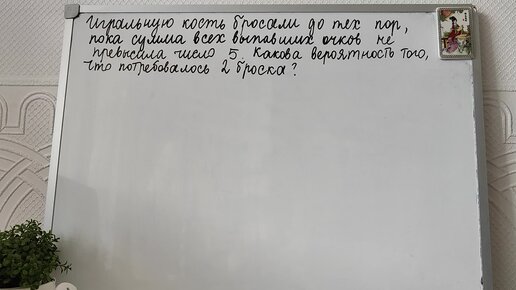 Игральную кость бросали до тех пор,
пока сумма всех выпавших очков не
превысила число 5. Какова вероятность того,
что потребовалось 2 броска?